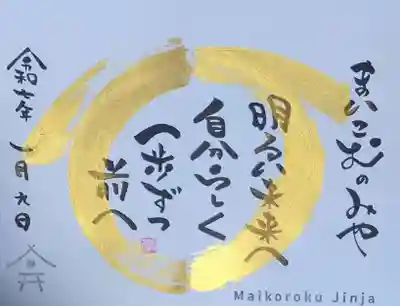 まいころくのみや
明るい未来へ
自分らしく
一歩ずつ
前へ
令和七年 一月九日
Maikoroku Jinja